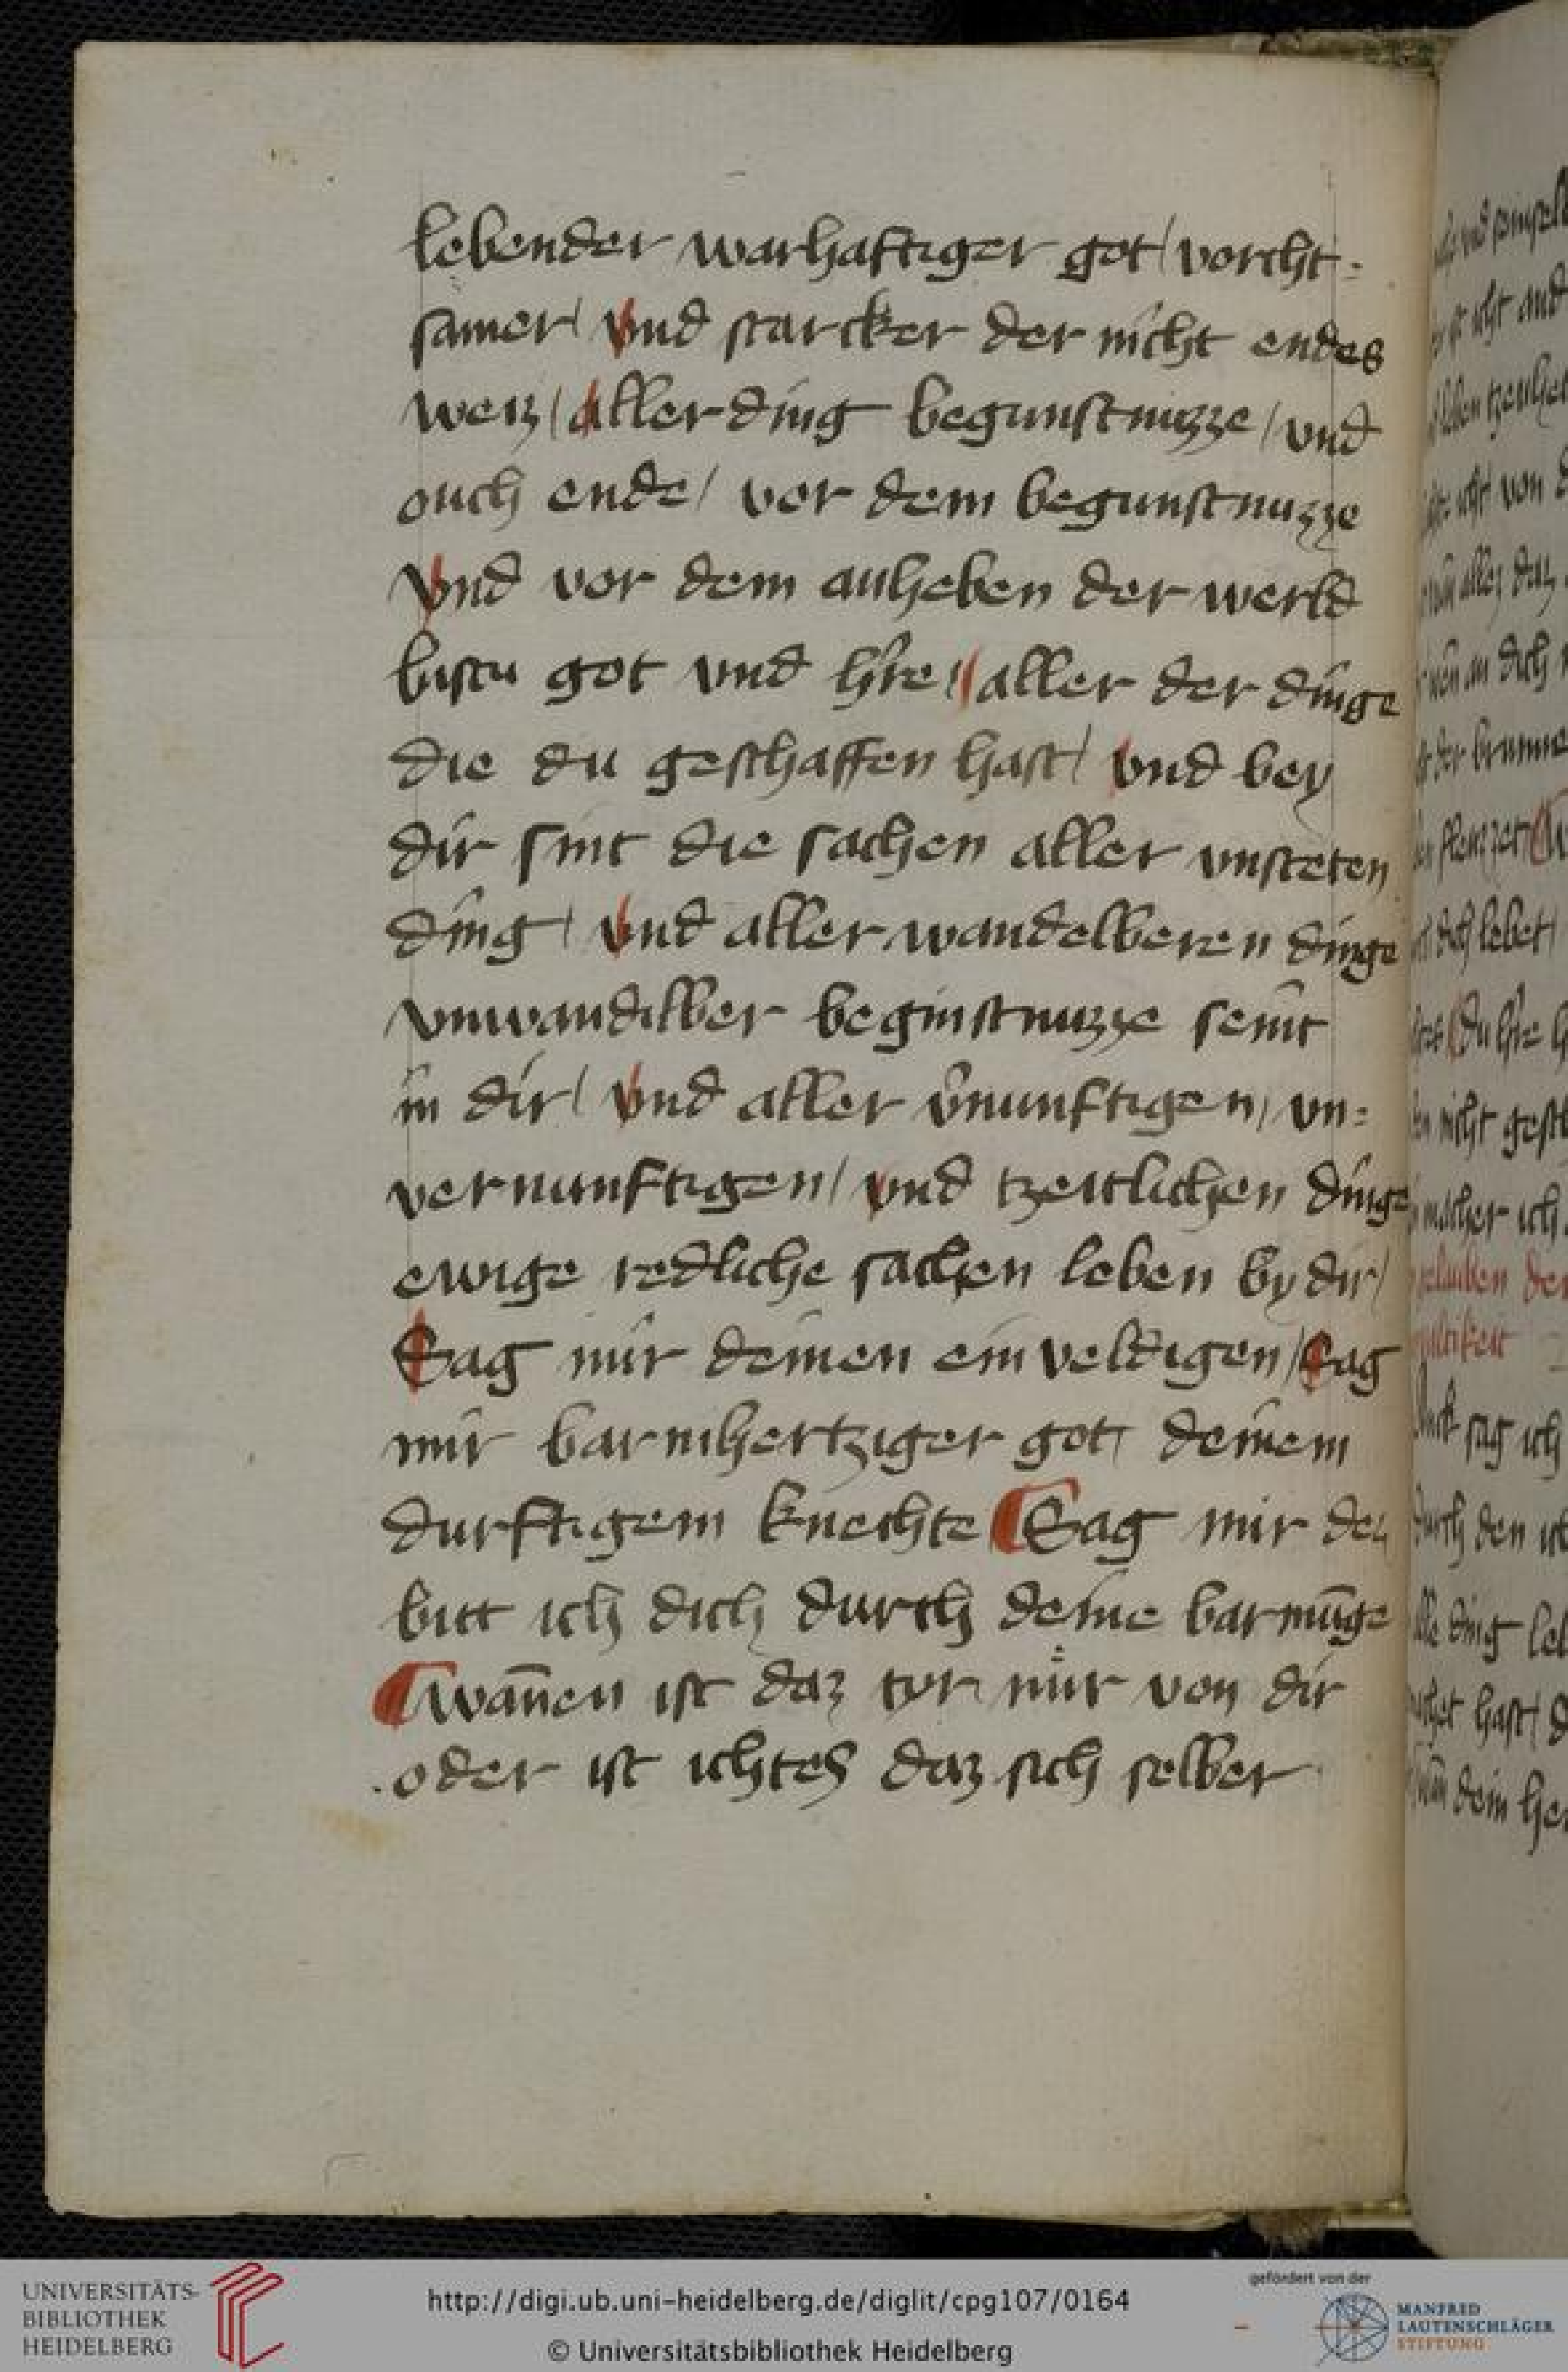 lebender warhaftiger got / vorcht⸗
samer / vnd starcker der nicht endes
weiz / aller ding begunstnizze / vnd
ouch ende / vor dem begunstnuzze
vnd vor dem anheben der werld
bistu got vnd h're / aller der dinge
die du geschaffen hast / vnd bey
dir sint die sachen aller vnsteten
ding / vnd aller wandelberen dinge
vnwandilber beginstnuzze seint
in dir / vnd aller v'nunftigen / vn⸗
vernunftigen / vnd tzeitlichen dinge
ewige redliche sachen leben by dir /
Sag mir deinen einveldigen / Sag
mir barmhertziger got / deinem
durftigem knechte Sag mir dez
bitt ich dich durch deine barmūge
wān̄en ist daz tyr mir von dir
oder ist ichtes daz sich selber
UNIVERSITÄTS-
BIBLIOTHEK
HEIDELBERG
http://digi.ub.uni-heidelberg.de/diglit/cpg107/0164
© Universitätsbibliothek Heidelberg
gefördert von der
MANFRED
LAUTENSCHLÄGER
STIFTUNG